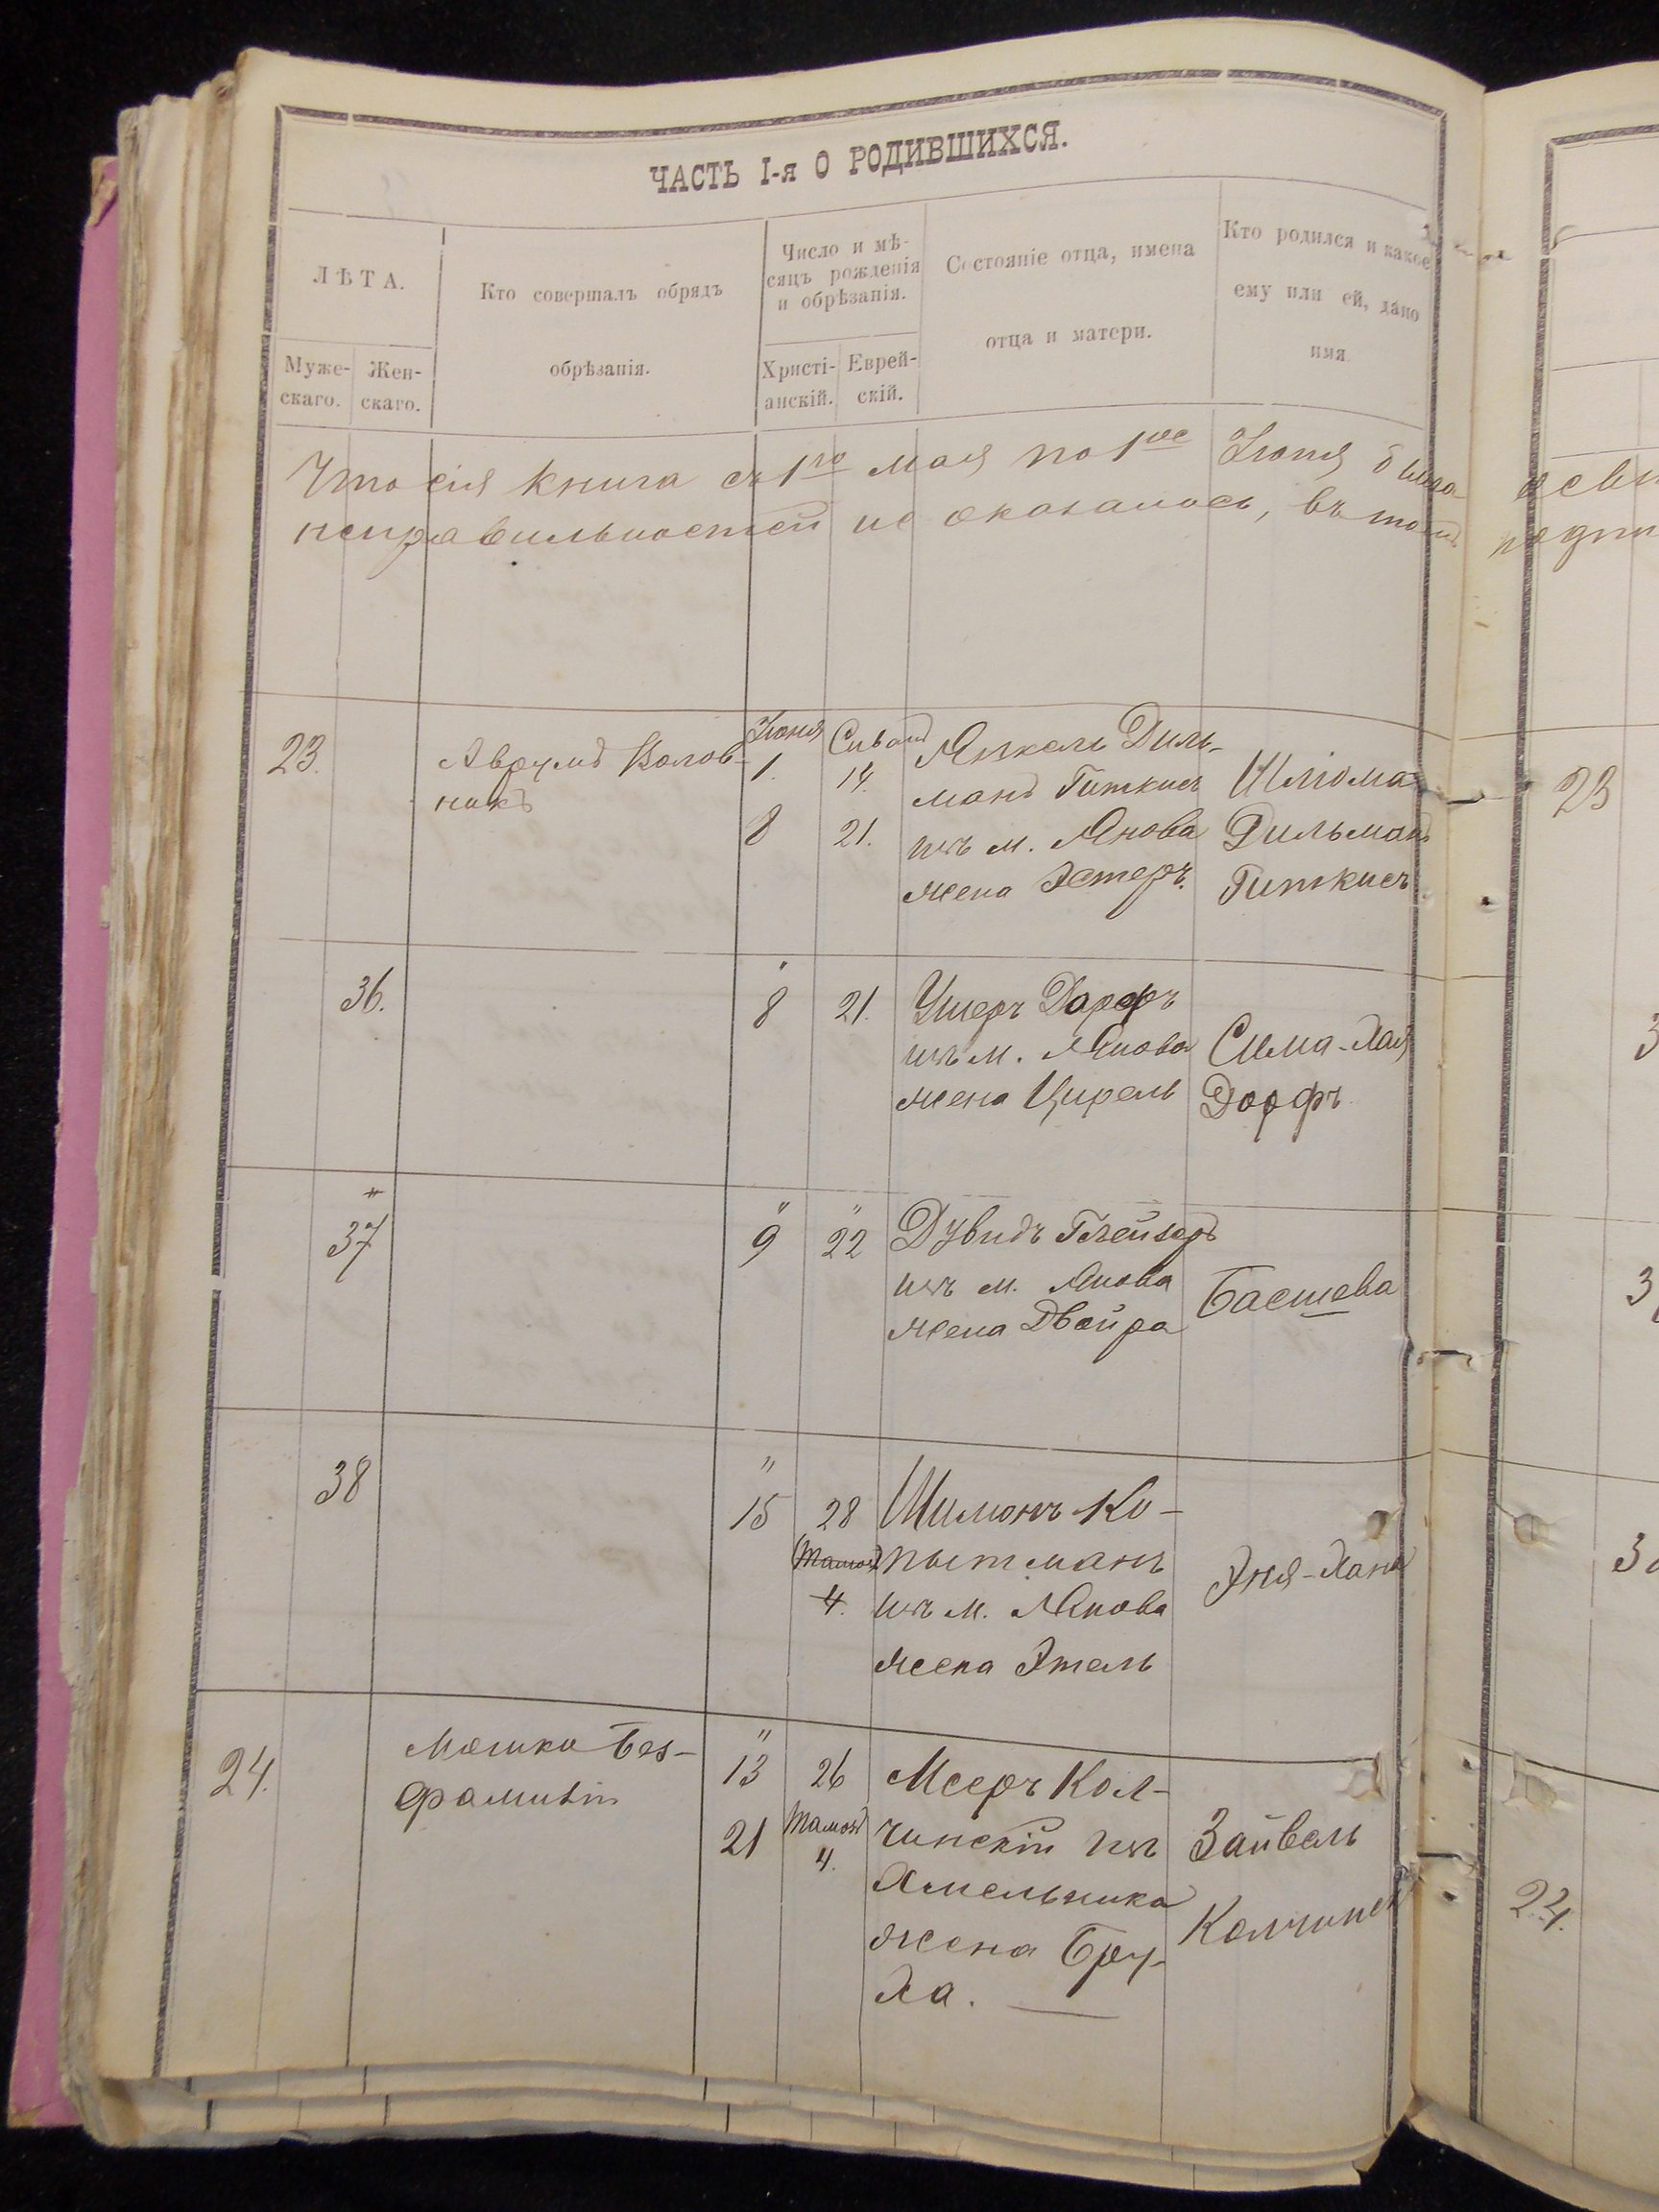 ЧАСТЬ I-я О РОДИВШИХСЯ.
ЛѢТА.
Муже-
скаго.
Жен-
скаго.
Кто совершалъ обрядъ
обрѣзанія.
Число и мѣ-
сяцъ рожденія
и обрѣзанія.
Христі-
анскій.
Еврей-
скій.
Состояніе отца, имена
отца и матери.
Кто родился и какое
ему или ей, дано
имя
Что сія книга съ 1го мая по 1ое Іюня была
неправильностей не оказалось, въ томъ
23.
Аврумъ Волов-
никъ
Іюня
1.
8
Сивонъ
14.
21.
Янкель Диль-
манъ Гиткисъ
изъ м. Янова
жена Эстеръ.
Шліома
Дильманъ
Гиткисъ
36.
8
21.
Ушеръ Дорфъ
изъ м. Янова
жена Цирель
Сима-Хая
Дорфъ
37
"
9
"
22
Дувидъ Глейзеръ
изъ м. Янова
жена Двойра
Басшева
38
"
15
28
4.
Шимонъ Ко-
пытманъ
изъ м. Янова
жена Этель
Эня-Хана
24.
Мошко Без-
фамилій
"
13
21
26
Тамозъ
4.
Мееръ Кол-
чинскій изъ
Хмельника
жена Бру-
ха.
Зайвель
Колчинск
23
24.